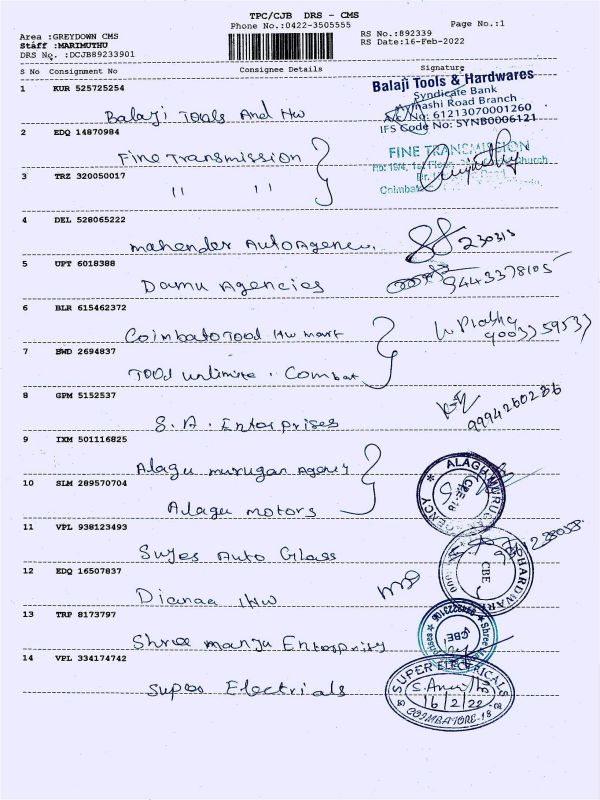 TPC/CJB DRS - CMS
Phone No.:0422-3505555
Page No.:1
Area :GREYDOWN CMS
Staff :MARIMUTHU
DRS No. :DCJB89233901
RS No.:892339
RS Date:16-Feb-2022
S No Consignment No Consignee Details Signature
1 KUR 525725254
Balaji Tools And Hw
Balaji Tools & Hardwares
Syndicate Bank
Avinashi Road Branch
A/c No: 61213070001260
IFS Code No: SYNB0006121
2 EDQ 14870984
Fine Transmission
FINE TRANSMISSION
3 TRZ 320050017
" "
4 DEL 528065222
mahender AutoAgencies
230313
5 UPT 6018388
Damu Agencies
9443378105
6 BLR 615462372
Coimbatore Tool Hw mart
7 BWD 2694837
Tool unlimite. Combat
8 GPM 5152537
S. A. Enterprises
9994260286
9 IXM 501116825
Alagu murugan Agency
10 SLM 289570704
Alagu motors
ALAGU MURUGAN AGENCY
CBE-18
11 VPL 938123493
Sujes Auto Glass
12 EDQ 16507837
Dianaa Hw
HARDWARE
CBE
13 TRP 8173797
Shree manju Enterprises
14 VPL 334174742
Super Electricals
SUPER ELECTRICALS
16/2/22
COIMBATORE-18